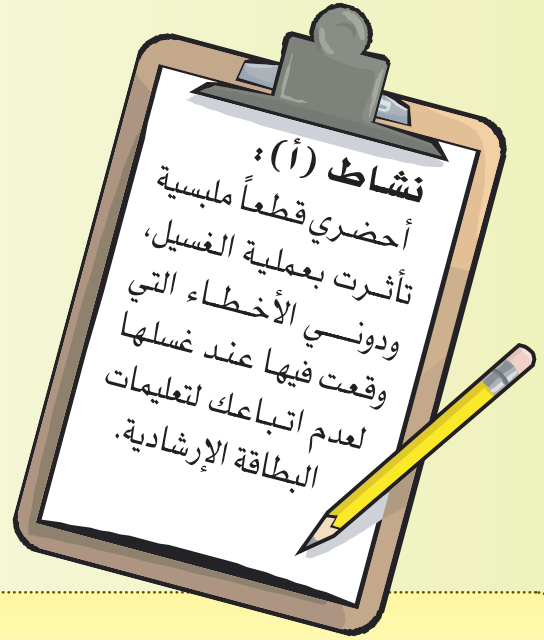 نشاط (أ) :
أحضري قطعاً ملبسية
تأثرت بعملية الغسيل،
ودوني الأخطاء التي
وقعت فيها عند غسلها
لعدم اتباعك لتعليمات
البطاقة الإرشادية.